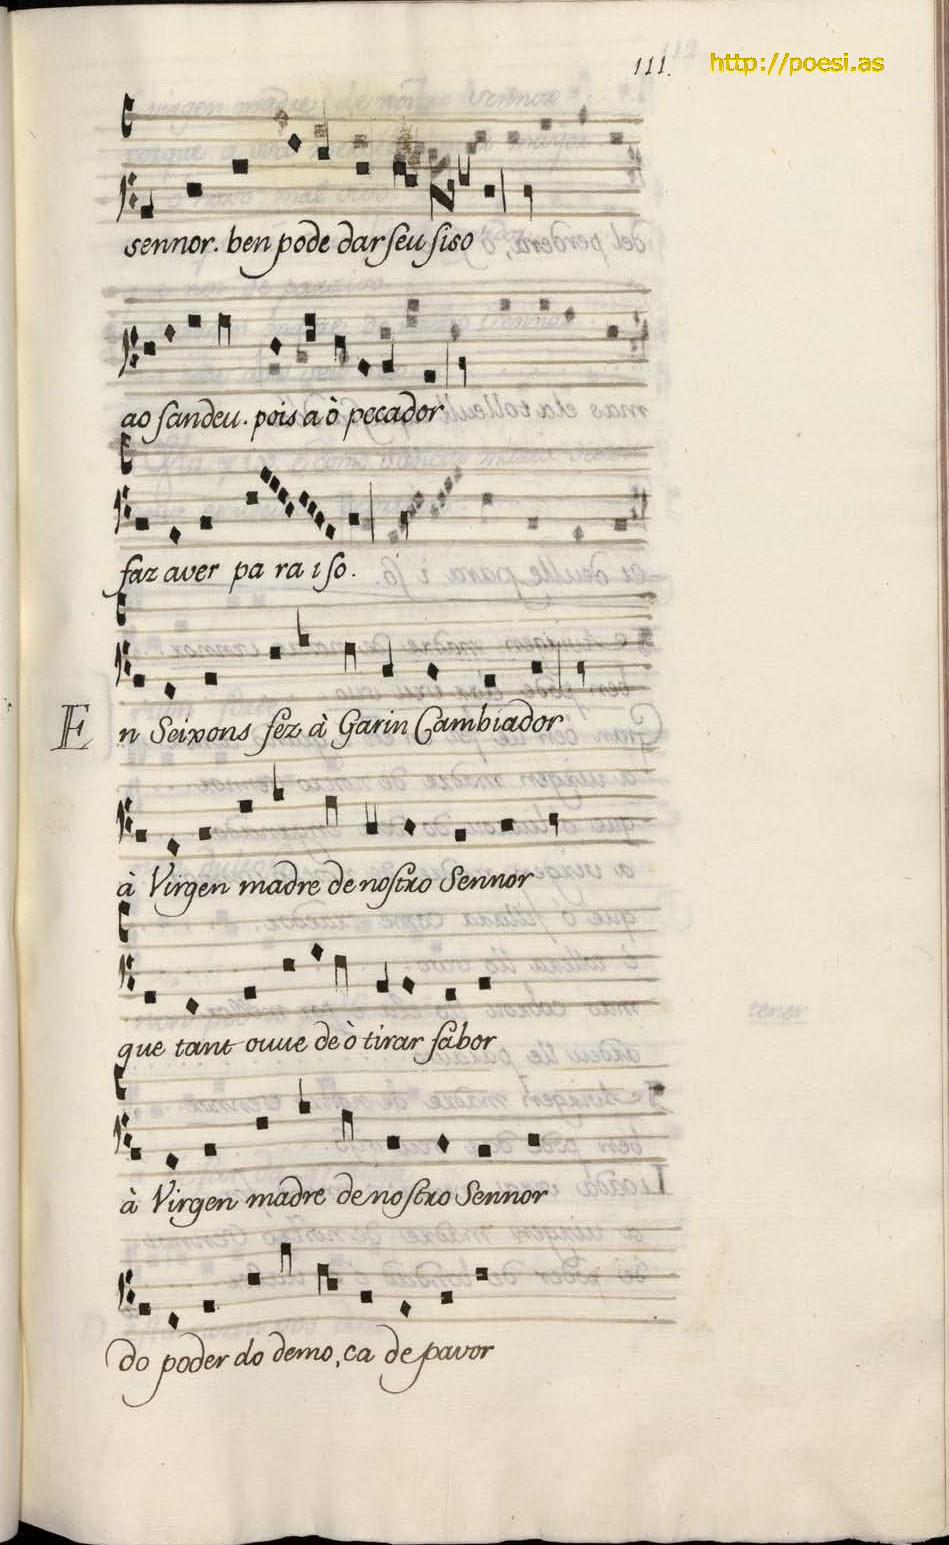 111.
http://poesi.as
sennor. ben pode dar seu siso
ao sandeu. pois a ò pecador
faz aver pa ra i so.
En Seixons fez à Garin Cambiador
à Virgen madre de nostro Sennor
que tant ouue de ò tirar sabor
à Virgen madre de nostro Sennor
do poder do demo, ca de pavor